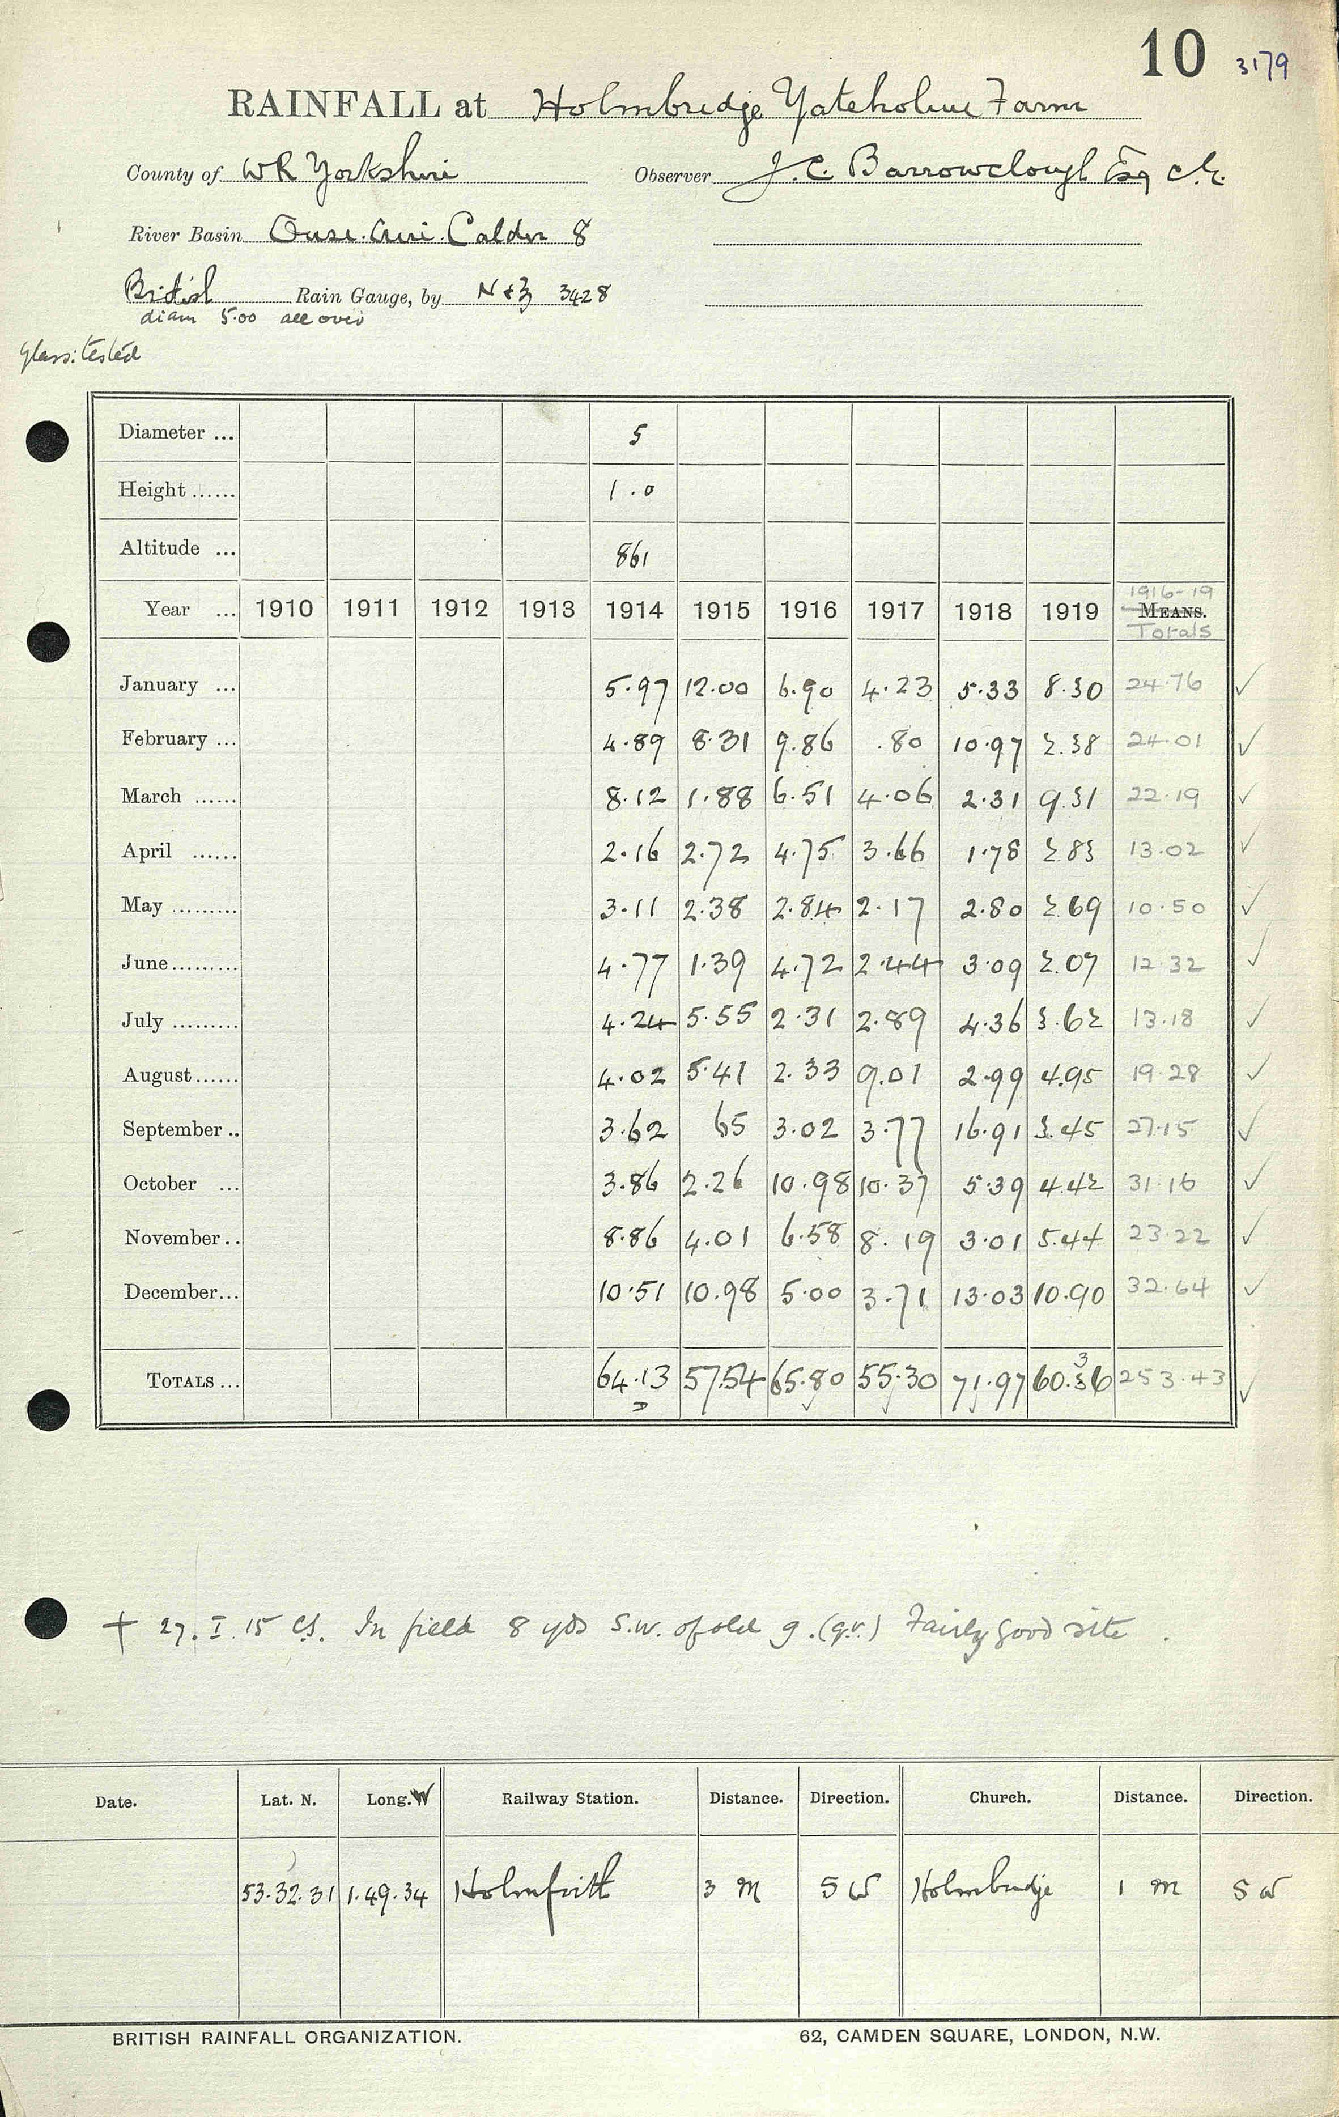 10 3179
RAINFALL at Holmbridge Yateholme Farm
County of WR Yorkshire Observer J.C. Barrowclough Esq C.E.
River Basin Ouse. Aire. Calder 8
British Rain Gauge, by N & Z 3428
diam 5.00 all over
Glass: tested
Diameter ... 5
Height ...... 1.0
Altitude ... 861
1916-19
Year ... 1910 1911 1912 1913 1914 1915 1916 1917 1918 1919 MEANS.
Totals
January ... 5.97 12.00 6.90 4.23 5.33 8.30 24.76 ✓
February ... 4.89 8.31 9.86 .80 10.97 2.38 24.01 ✓
March ...... 8.12 1.88 6.51 4.06 2.31 9.31 22.19 ✓
April ...... 2.16 2.72 4.75 3.66 1.78 2.83 13.02 ✓
May ......... 3.11 2.38 2.84 2.17 2.80 2.69 10.50 ✓
June ......... 4.77 1.39 4.72 2.44 3.09 2.07 12.32 ✓
July ......... 4.24 5.55 2.31 2.89 4.36 3.62 13.18 ✓
August ...... 4.02 5.41 2.33 9.01 2.99 4.95 19.28 ✓
September .. 3.62 65 3.02 3.77 16.91 3.45 27.15 ✓
October ... 3.86 2.26 10.98 10.37 5.39 4.42 31.16 ✓
November .. 8.86 4.01 6.58 8.19 3.01 5.44 23.22 ✓
December... 10.51 10.98 5.00 3.71 13.03 10.90 32.64 ✓
3
TOTALS ... 64.13 57.54 65.80 55.30 71.97 60.36 253.43 ✓
+ 27. I. 15 CS. In field 8 yds S.W. of old g. (q.v.) Fairly good site.
Date. Lat. N. Long. W Railway Station. Distance. Direction. Church. Distance. Direction.
53.32.31 1.49.34 Holmfirth 3 m SW Holmbridge 1 m SW
BRITISH RAINFALL ORGANIZATION. 62, CAMDEN SQUARE, LONDON, N.W.